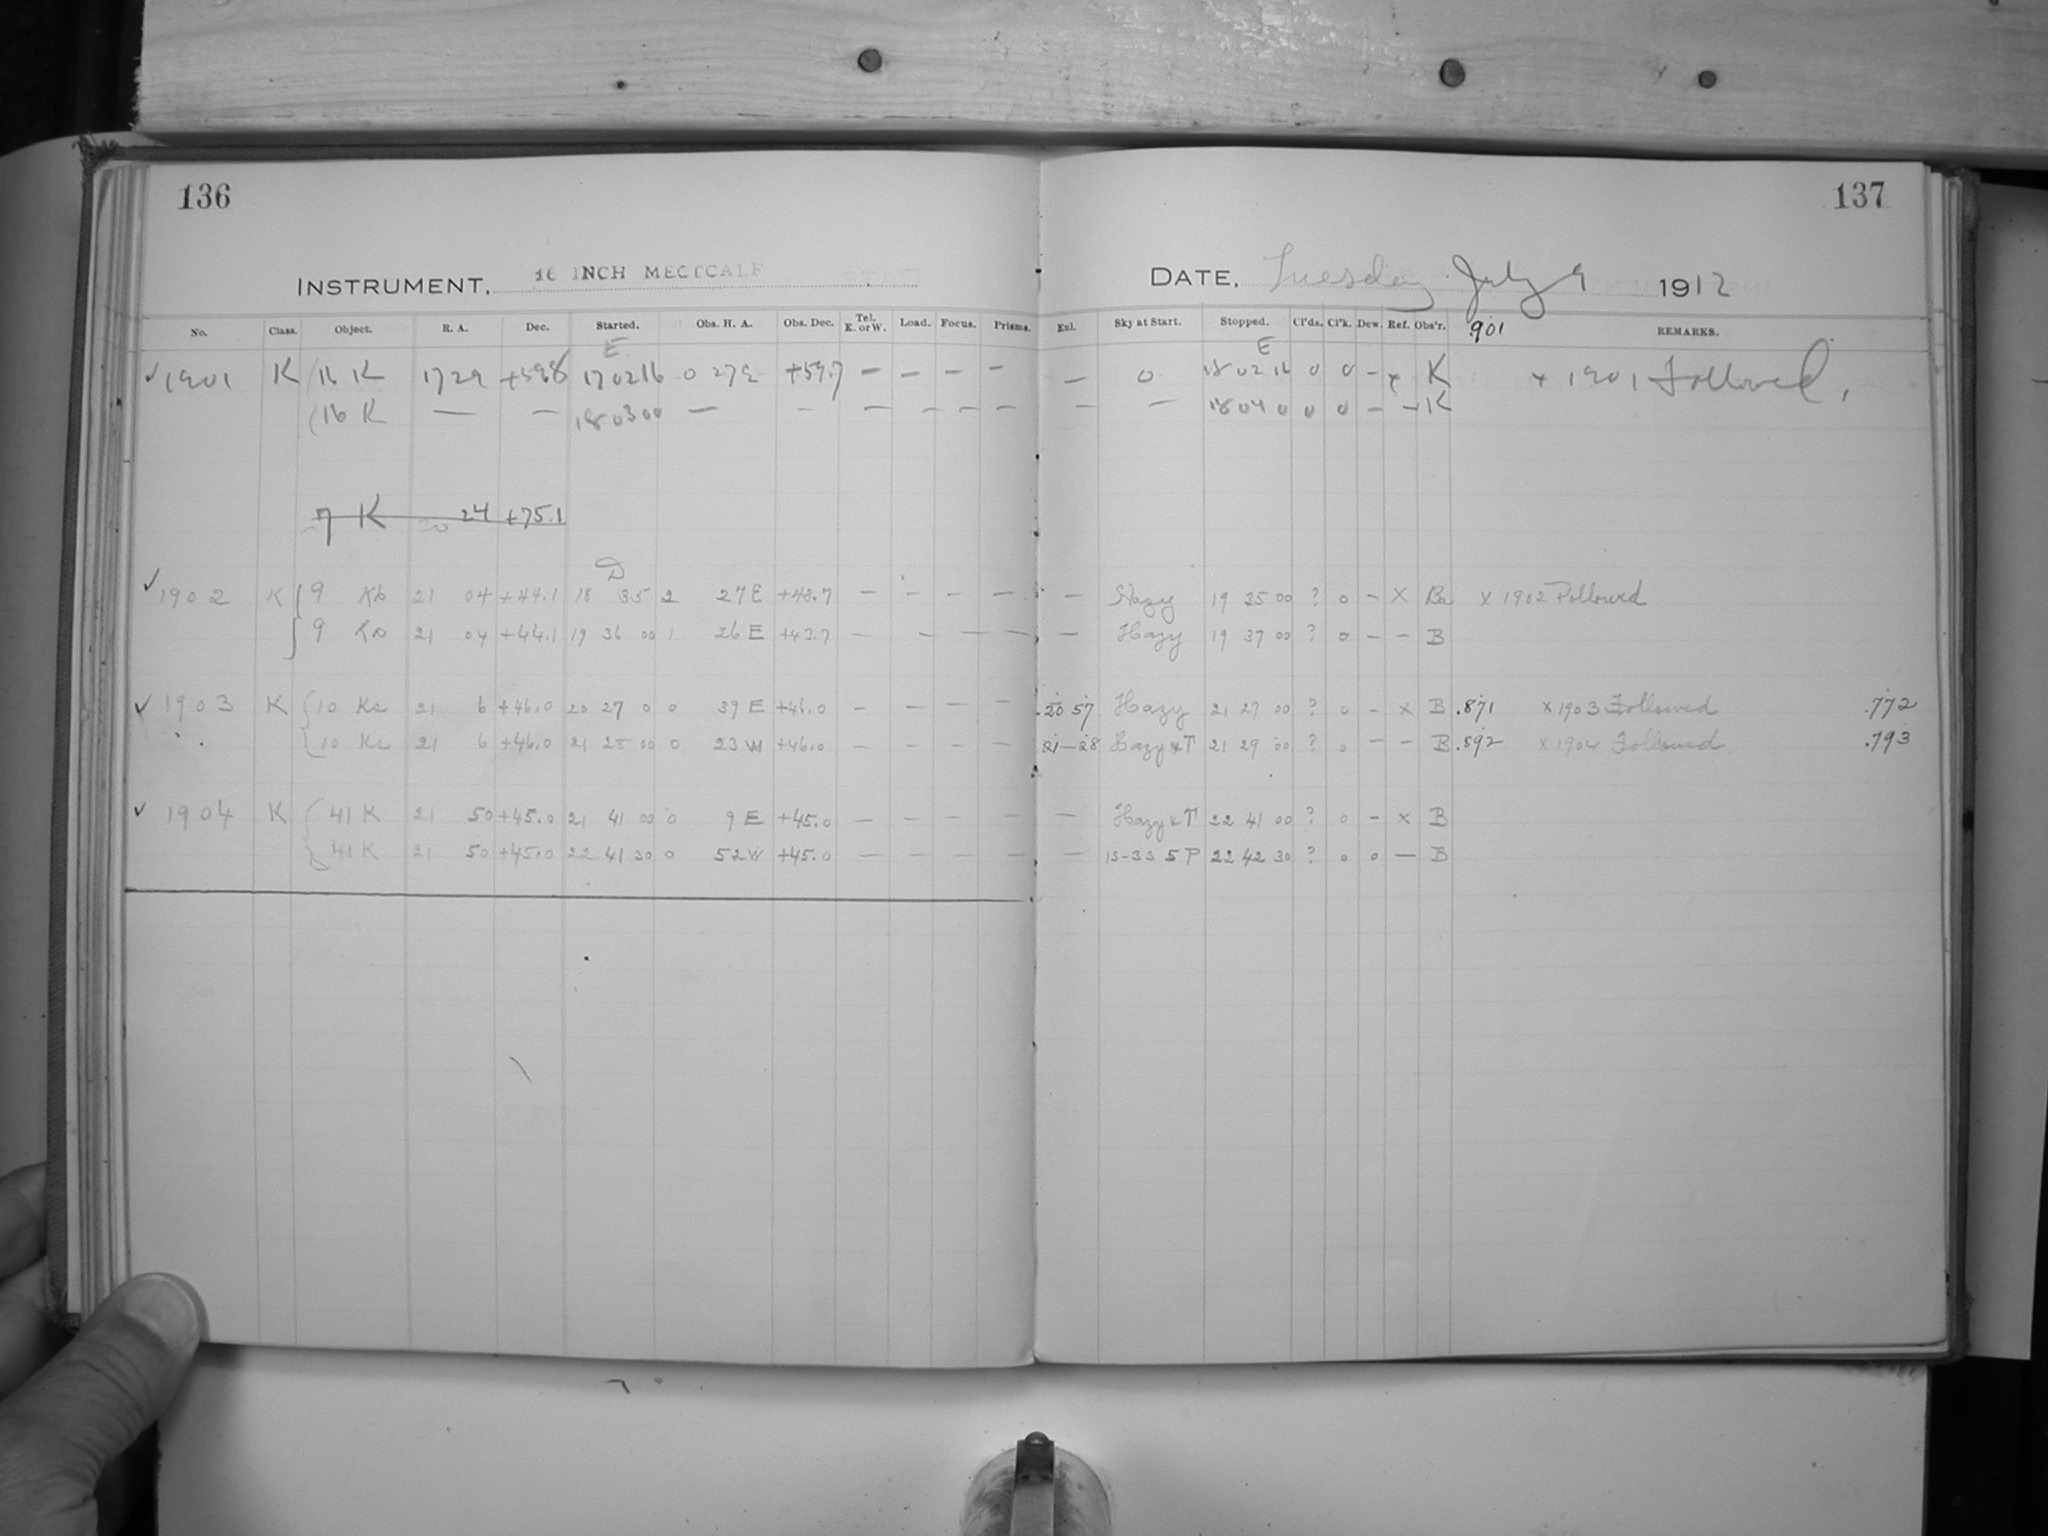 136
137
INSTRUMENT. 16 INCH METCALF
DATE. Tuesday July 9 1912
No. Class. Object. R. A. Dec. Started. Obs. H. A. Obs. Dec. Tel. E. or W. Load. Focus. Prisms. Exl. Sky at Start. Stopped. Cl'ds. Cl'k. Dew. Ref. Obs'r. .901 REMARKS.
E E
✓1901 K (16 K 17 29 +59.8 17 02 16 0 27 E +59.7 — — — — — 0 18 02 16 0 0 — x K x 1901 Followed.
(16 K — — 18 03 00 — — — — — — — — 18 04 0 0 0 — — K
7 K 24 +75.1
D
✓1902 K 9 Kb 21 04 +44.1 18 35 2 27 E +43.7 — — — — — Hazy 19 35 00 ? 0 — x Ba x 1902 Followed
9 Kb 21 04 +44.1 19 36 00 1 26 E +43.7 — — — — — Hazy 19 37 00 ? 0 — — B
✓1903 K (10 Ka 21 6 +46.0 20 27 0 0 39 E +46.0 — — — — 20 57 Hazy 21 27 00 ? 0 — x B .871 x 1903 Followed .772
(10 Ka 21 6 +46.0 21 28 00 0 23 W +46.0 — — — — 21—28 Hazy & T 21 29 00 ? 0 — — B .892 x 1904 Followed .793
✓1904 K (41 K 21 50 +45.0 21 41 00 0 9 E +45.0 — — — — — Hazy & T 22 41 00 ? 0 — x B
(41 K 21 50 +45.0 22 41 30 0 52 W +45.0 — — — — — 13-33 5 P 22 42 30 ? 0 0 — B